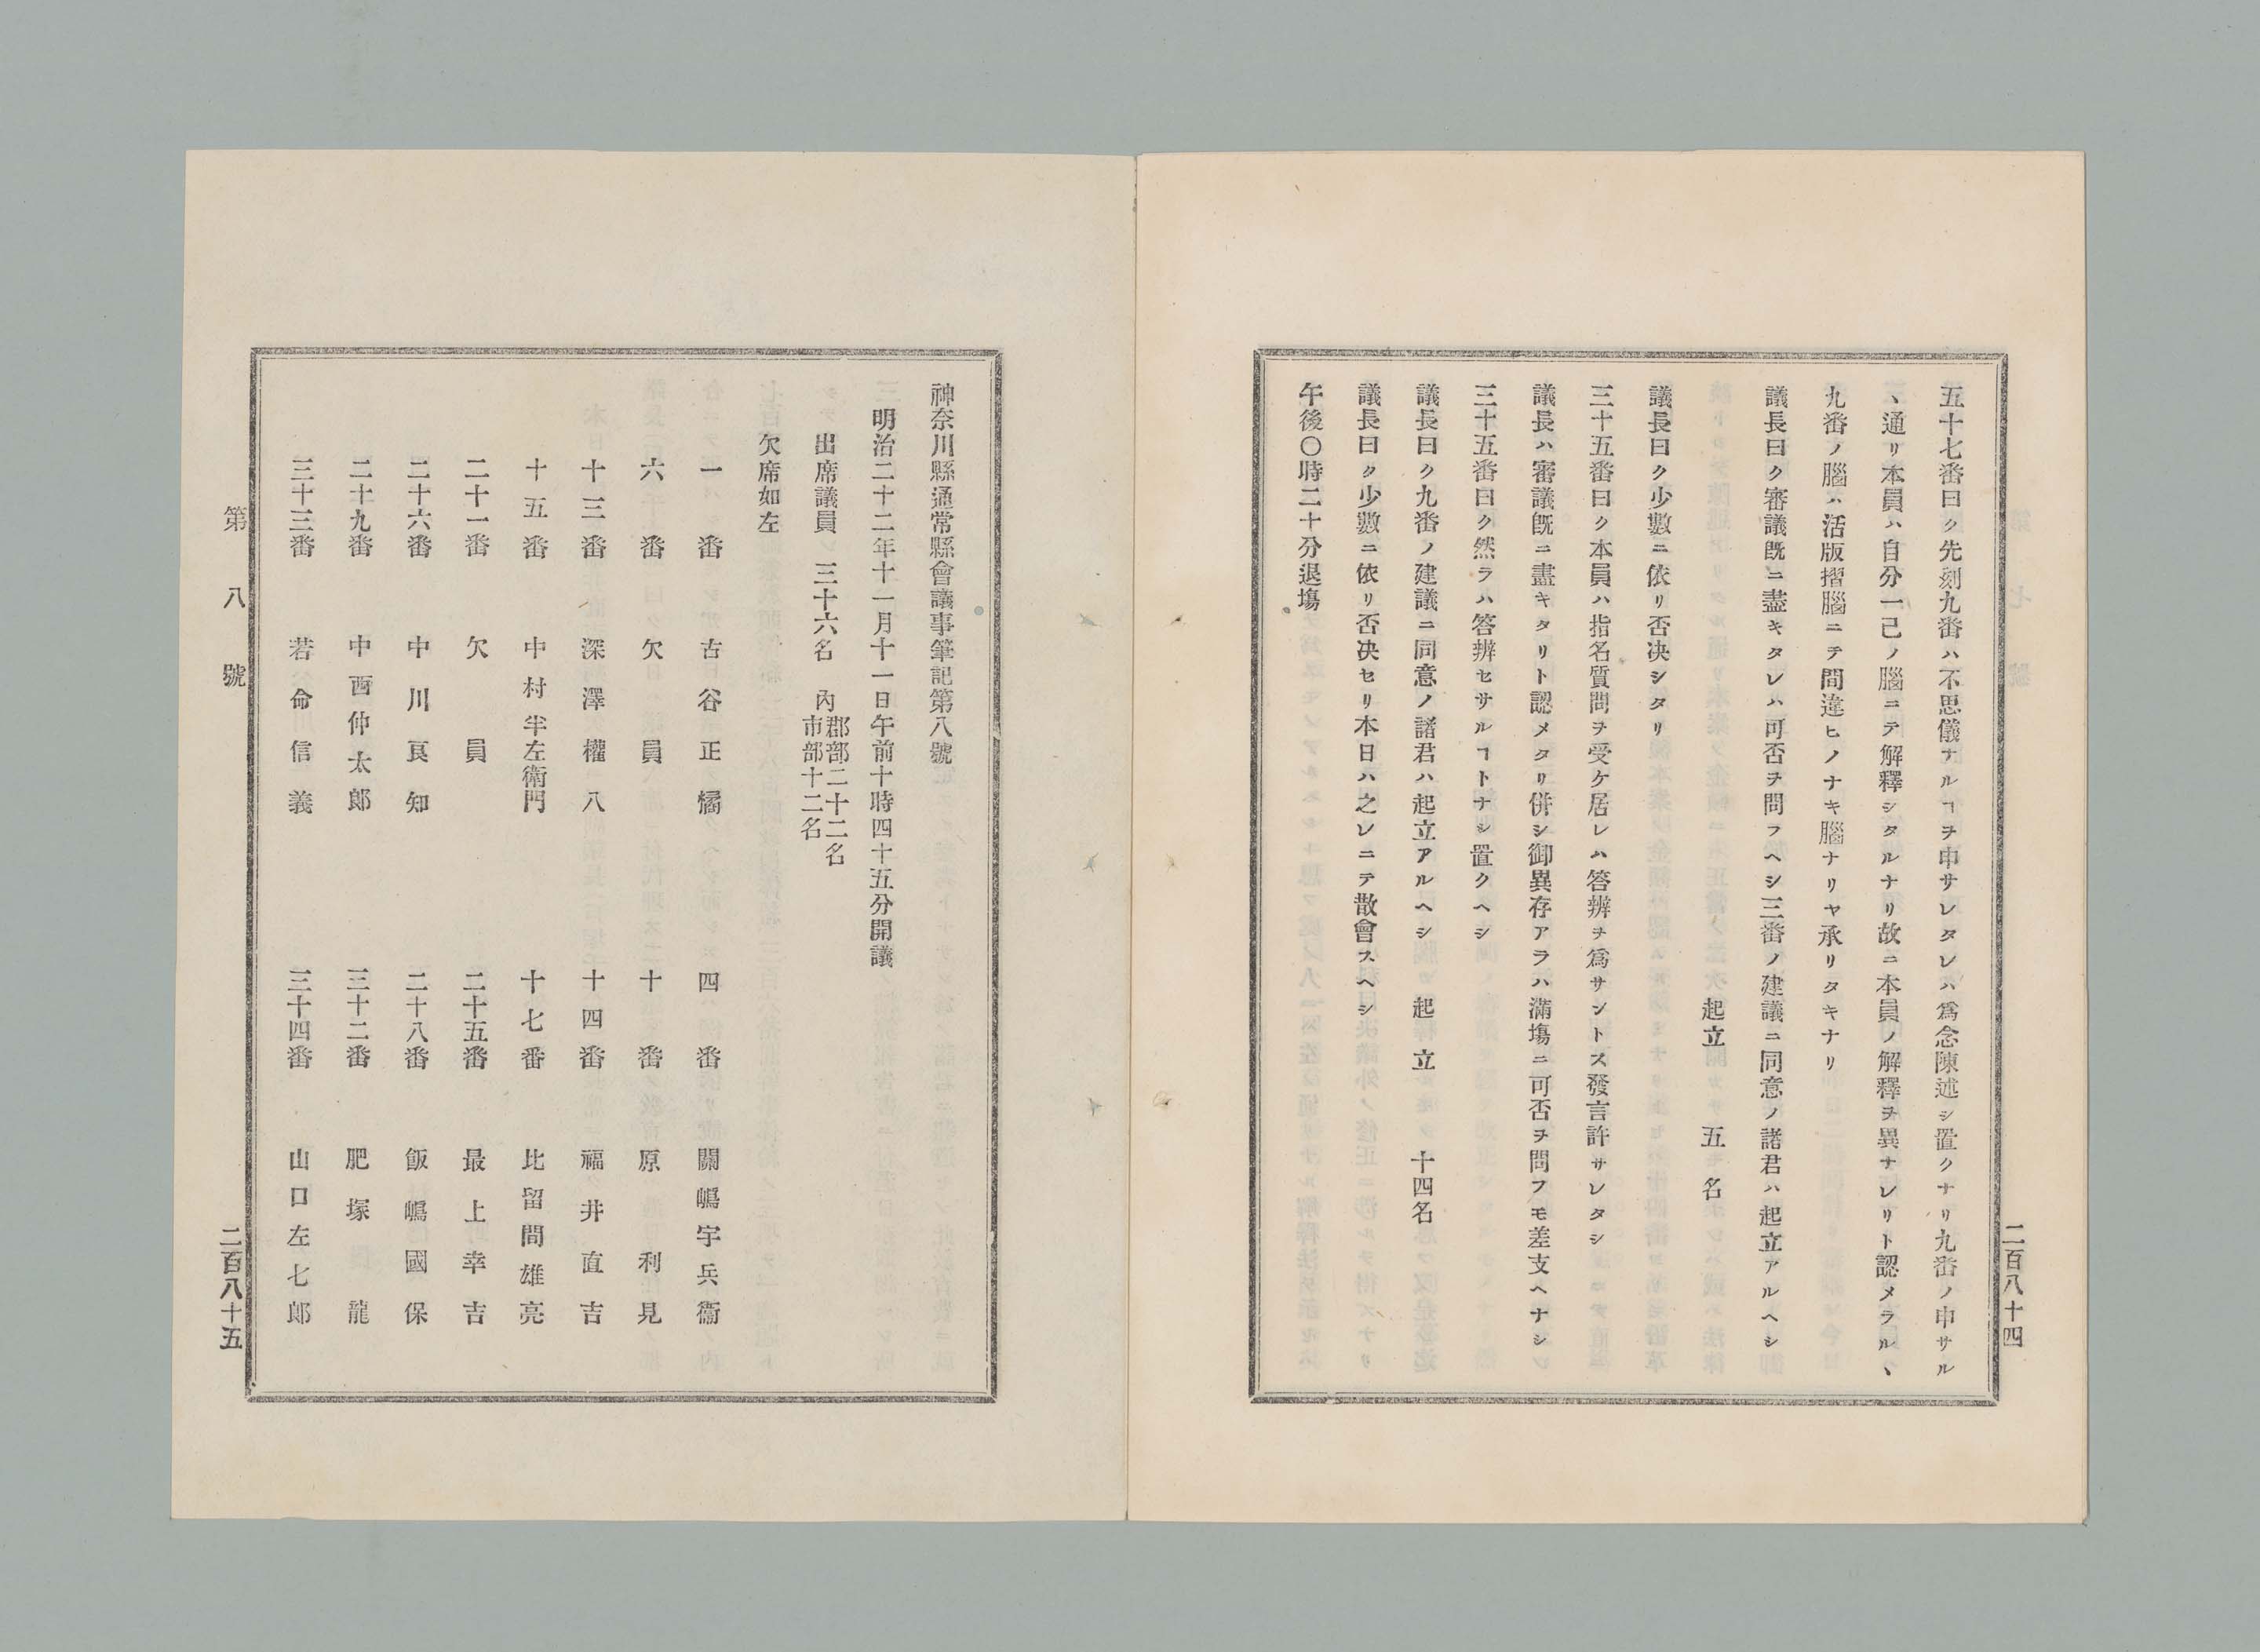 五十七番曰ク先刻九番ハ不思儀ナルヿヲ申サレタレハ爲念陳述シ置クナリ九番ノ申サル
ヽ通リ本員ハ自分一己ノ腦ニテ解釋シタルナリ故ニ本員ノ解釋ヲ異ナレリト認メラルヽ
九番ノ腦ハ活版摺腦ニテ間違ヒノナキ腦ナリヤ承リタキナリ
議長曰ク審議既ニ盡キタレハ可否ヲ問フヘシ三番ノ建議ニ同意ノ諸君ハ起立アルヘシ
起立 五名
議長曰ク少數ニ依リ否决シタリ
三十五番曰ク本員ハ指名質問ヲ受ケ居レハ答辨ヲ爲サントス發言許サレタシ
議長ハ審議既ニ盡キタリト認メタリ併シ御異存アラハ滿塲ニ可否ヲ問フモ差支ヘナシ
三十五番曰ク然ラハ答辨セサルヿトナシ置クヘシ
議長曰ク九番ノ建議ニ同意ノ諸君ハ起立アルヘシ 起立 十四名
議長曰ク少數ニ依リ否决セリ本日ハ之レニテ散會スヘシ
午後〇時二十分退塲
二百八十四
神奈川縣通常縣會議事筆記第八號
明治二十二年十一月十一日午前十時四十五分開議
出席議員 三十六名 內 郡部二十二名
市部十二名
欠席如左
一番 古谷正橘 四番 關嶋宇兵衞
六番 欠員 十番 原利見
十三番 深澤權八 十四番 福井直吉
十五番 中村半左衞門 十七番 比留間雄亮
二十一番 欠員 二十五番 最上幸吉
二十六番 中川良知 二十八番 飯嶋國保
二十九番 中西仲太郎 三十二番 肥塚龍
三十三番 若命信義 三十四番 山口左七郎
第八號
二百八十五